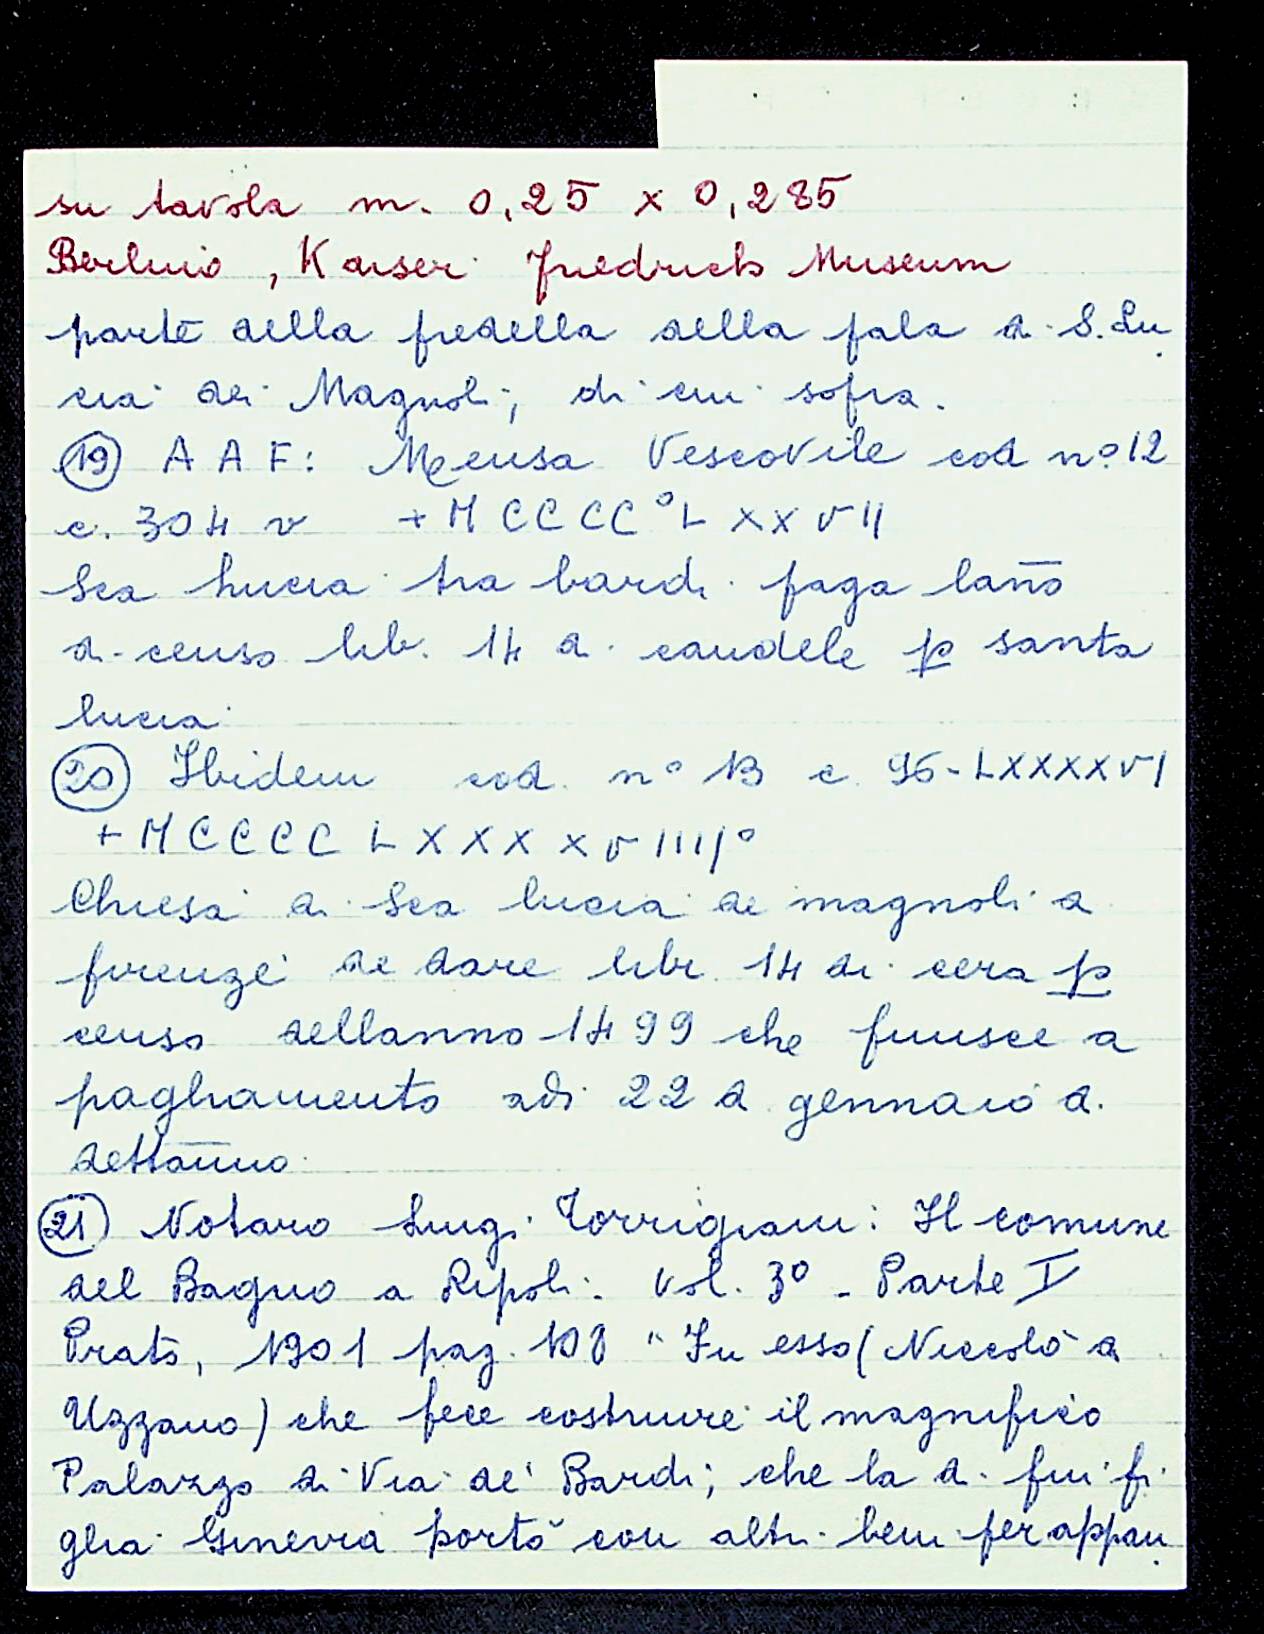 su tavola m. 0,25 x 0,285
Berlino, Kaiser Friedrich Museum
parte della predella della pala di S. Lu
cia dei Magnoli, di cui sopra.
(19) A A F: Mensa Vescovile cod nº 12
c. 304 v + M CCCC° L XX VII
Sca Lucia tra bardi paga lan̄o
di censo lib. 14 di candele p santa
lucia
(20) Ibidem cod. nº 13 c. 96 - LXXXXVI
+ M CCCC L XXXX VIIII°
Chiesa di Sca lucia de magnoli di
firenze de dare libr. 14 di cera p
censo dellanno 1499 che finisce a
paghamento adi 22 di gennaio di
dettan̄no
(21) Notaro Luigi Torrigiani: Il comune
del Bagno a Ripoli. Vol. 3º - Parte I
Prato, 1901 pag. 108 "Fu esso (Niccolò da
Uzzano) che fece costruire il magnifico
Palazzo di Via de' Bardi; che la di lui fi
glia Ginevra portò con altri beni per appan